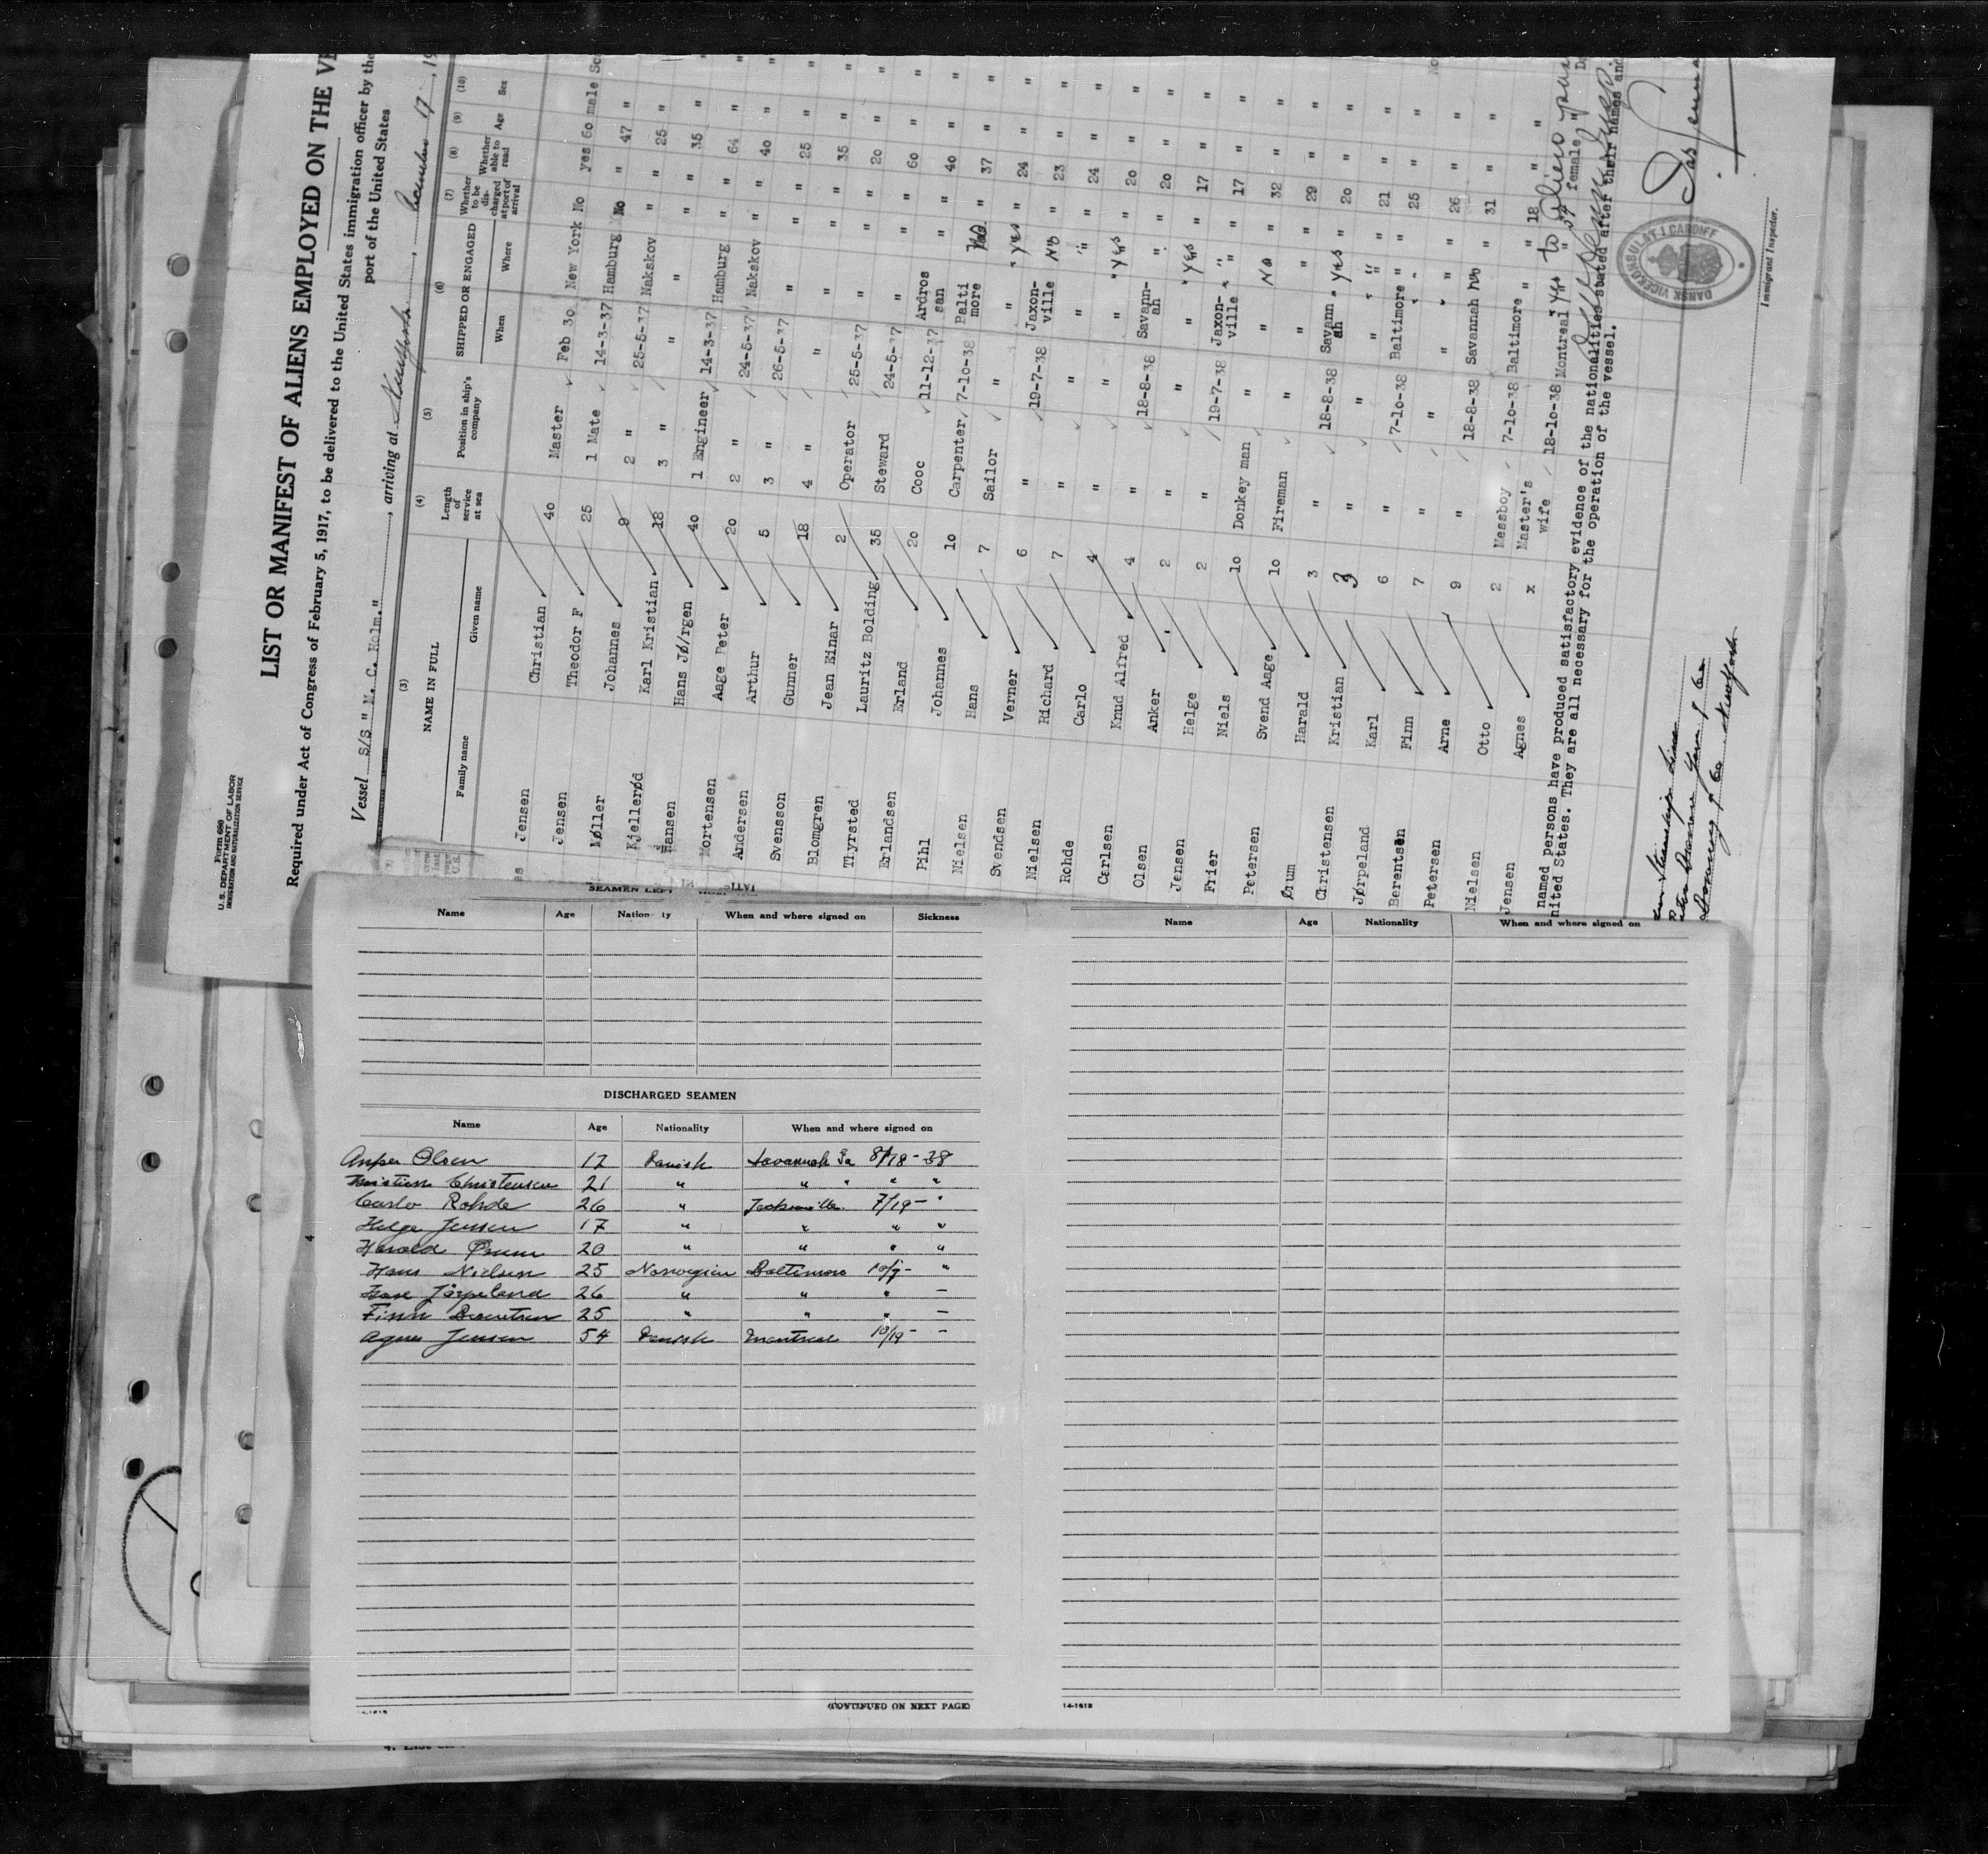 Form 680
U. S. DEPARTMENT OF LABOR
IMMIGRATION AND NATURALIZATION SERVICE
LIST OR MANIFEST OF ALIENS EMPLOYED ON THE VE
Required under Act of Congress of February 5, 1917, to be delivered to the United States immigration officer by the
port of the United States
Vessel S/S " M. C. Holm." , arriving at , 17 , 19
(3) (4) (5) (6) (7) (8) (9) (10)
NAME IN FULL Length of service at sea Position in ship's company SHIPPED OR ENGAGED Whether to be discharged at port of arrival Whether able to read Age Sex
Family name Given name When Where
Jensen Christian 40 Master Feb 30 New York No yes 60 male
Jensen Theodor F 25 1 Mate 14-3-37 Hamburg No " 47 "
Møller Johannes 9 2 " 25-5-37 Nakskov " " 25 "
Kjellerød Karl Kristian 18 3 " " " " " 35 "
Hansen Hans Jørgen 40 1 Engineer 14-3-37 Hamburg " " 64 "
Mortensen Aage Peter 20 2 " 24-5-37 Nakskov " " 40 "
Andersen Arthur 5 3 " 26-5-37 " " " 25 "
Svensson Gunner 18 4 " " " " " 35 "
Blomgren Jean Einar 2 Operator 25-5-37 " " " 20 "
Thyrsted Lauritz Bolding 35 Steward 24-5-37 " " " 60 "
Erlandsen Erland 20 Cooc 11-12-37 Ardrossan " " 40 "
Pihl Johannes 10 Carpenter 7-10-38 Baltimore " 37 "
Nielsen Hans 7 Sailor " " Yes " 24 "
Svendsen Verner 6 " 19-7-38 Jaxonville No " 23 "
Nielsen Richard 7 " " " " " 24 "
Rohde Carlo 4 " " " Yes " 20 "
Carlsen Knud Alfred 4 " 18-8-38 Savannah " " 20 "
Olsen Anker 2 " " " Yes " 17 "
Jensen Helge 2 " 19-7-38 Jaxonville " " 17 "
Frier Niels 10 Donkey man " " No " 32 "
Petersen Svend Aage 10 Fireman " " " " 29 "
Ørum Harald 3 " 18-8-38 Savannah Yes " 20 "
Christensen Kristian 3 " " " " " 21 "
Jørpeland Karl 6 " 7-10-38 Baltimore " " 25 "
Berentsen Finn 7 " " " " " 26 "
Petersen Arne 9 " 18-8-38 Savannah No " 31 "
Nielsen Otto 2 Messboy 7-10-38 Baltimore " " 18 "
Jensen Agnes x Master's wife 18-10-38 Montreal Yes " 54 female
named persons have produced satisfactory evidence of the nationalities stated after their names and
nited States. They are all necessary for the operation of the vessel.
DANSK VICEKONSULAT I CARDIFF
Immigrant Inspector.
SEAMEN LEFT
Name Age Nationality When and where signed on Sickness
DISCHARGED SEAMEN
Name Age Nationality When and where signed on
Olsen 17 Danish Savannah Ga 8/18-38
Kristian Christensen 21 " " " " "
Carlo Rohde 26 " Jacksonville 7/19- "
Helge Jensen 17 " " " "
Harald Ørum 20 " " " "
Hans Nielsen 25 Norwegian Baltimore 10/7- "
Jørpeland 26 " " " -
Finn Berentsen 25 " " " -
Agnes Jensen 54 Danish Montreal 10/19- -
(CONTINUED ON NEXT PAGE)
Name Age Nationality When and where signed on
14-1618